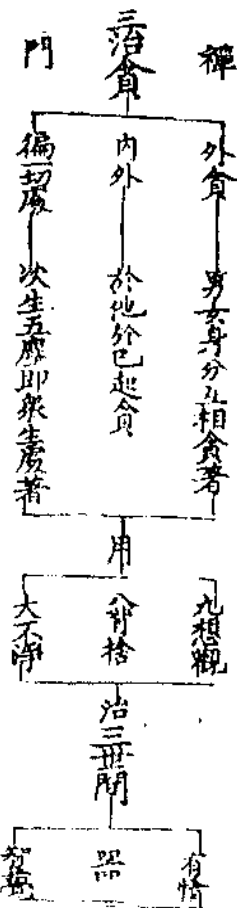 禪門
三治貪
外貪
男女身分互相貪著
內外
於他於已起貪
徧一切處
次生五塵即衆生處著
用
九想觀
八背捨
大不淨
治三世間
有情
器